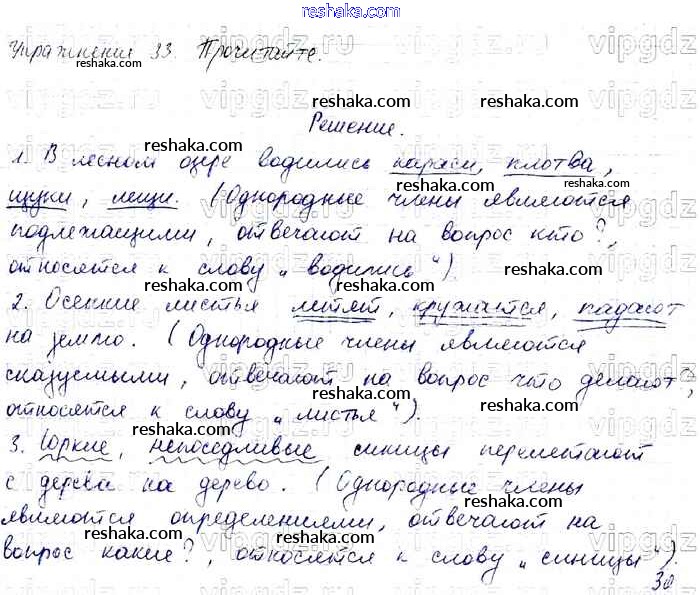 reshaka.com
Упражнение 33. Прочитайте.
Решение.
1. В лесном озере водились караси, плотва,
щуки, лещи. (Однородные члены являются
подлежащими, отвечают на вопрос кто?,
относятся к слову „водились“).
2. Осенние листья летят, кружатся, падают
на землю. (Однородные члены являются
сказуемыми, отвечают на вопрос что делают?,
относятся к слову „листья“).
3. Юркие, непоседливые синицы перелетают
с дерева на дерево. (Однородные члены
являются определениями, отвечают на
вопрос какие?, относятся к слову „синицы“).